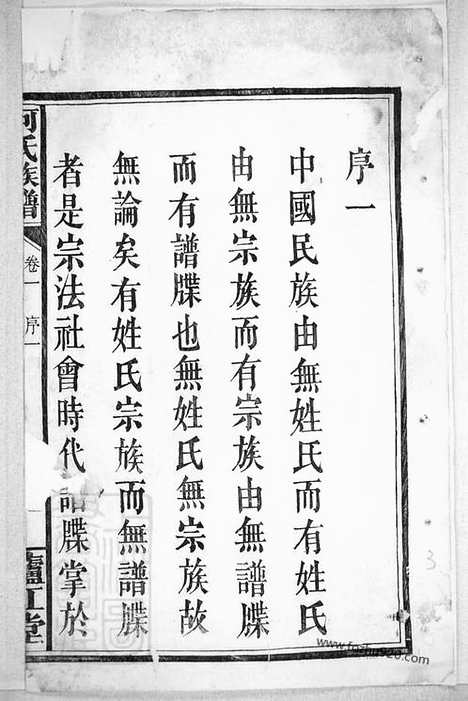 序一
中國民族由無姓氏而有姓氏
由無宗族而有宗族由無譜牒
而有譜牒也無姓氏無宗族故
無論矣有姓氏宗族而無譜牒
者是宗法社會時代譜牒掌於
何氏族譜
卷一
序一
廬江堂
3